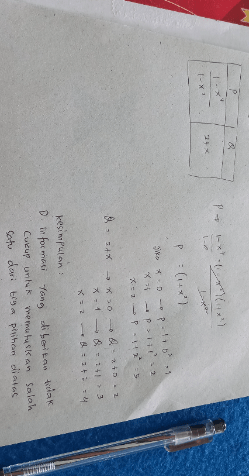 P
Q
1-x⁴
1-x²
2+x
P = (1+x²)
Jika x = 0 → P = 1+0² = 1
x = 1 → P = 1+1² = 2
x = 2 → P = 1+2² = 5
Q = 2+x → x=0 → Q = 2+0 = 2
x = 1 → Q = 2+1 = 3
x = 2 → Q = 2+2 = 4
Kesimpulan :
D informasi yang diberikan tidak
cukup untuk memutuskan salah
satu dari tiga pilihan diatas